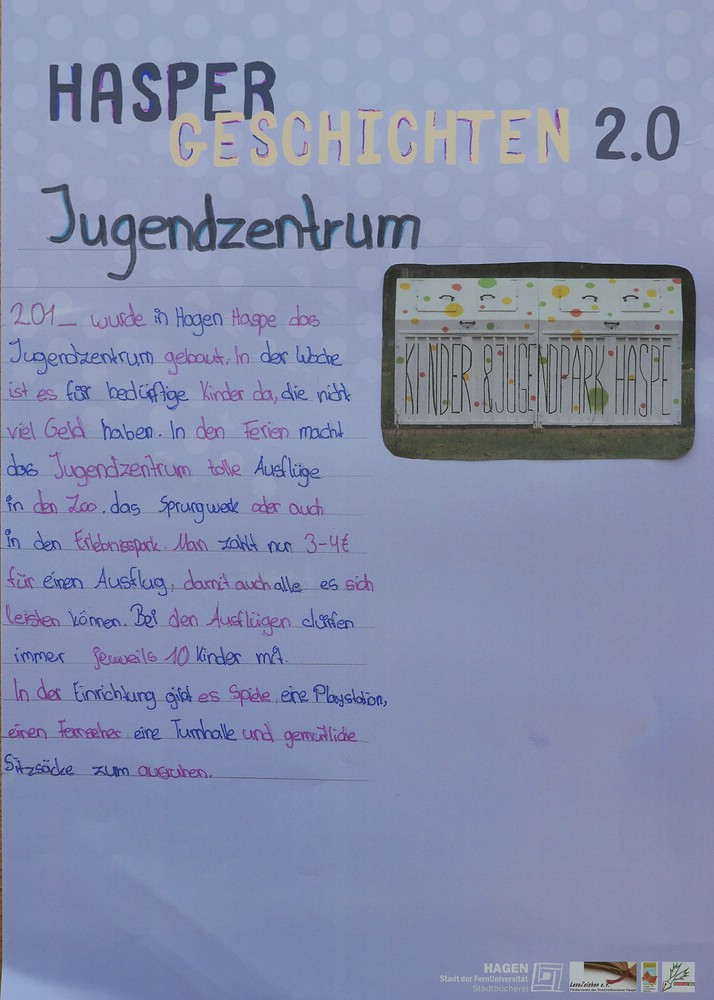 HASPER
GESCHICHTEN 2.0
Jugendzentrum
201_ wurde in Hagen Haspe das
Jugendzentrum gebaut. In der Woche
ist es für bedürftige Kinder da, die nicht
viel Geld haben. In den Ferien macht
das Jugendzentrum tolle Ausflüge
in den Zoo, das Sprungwerk oder auch
in den Erlebnisspark. Man zahlt nur 3-4€
für einen Ausflug, damit auch alle es sich
leisten können. Bei den Ausflügen dürfen
immer jeweils 10 Kinder mit.
In der Einrichtung gibt es Spiele, eine Playstation,
einen Fernseher, eine Turnhalle und gemütliche
Sitzsäcke zum ausruhen.
KINDER & JUGENDPARK HASPE
HAGEN
Stadt der FernUniversität
Stadtbücherei
LeseZeichen e.V.
Förderverein der Stadtteilbücherei Haspe